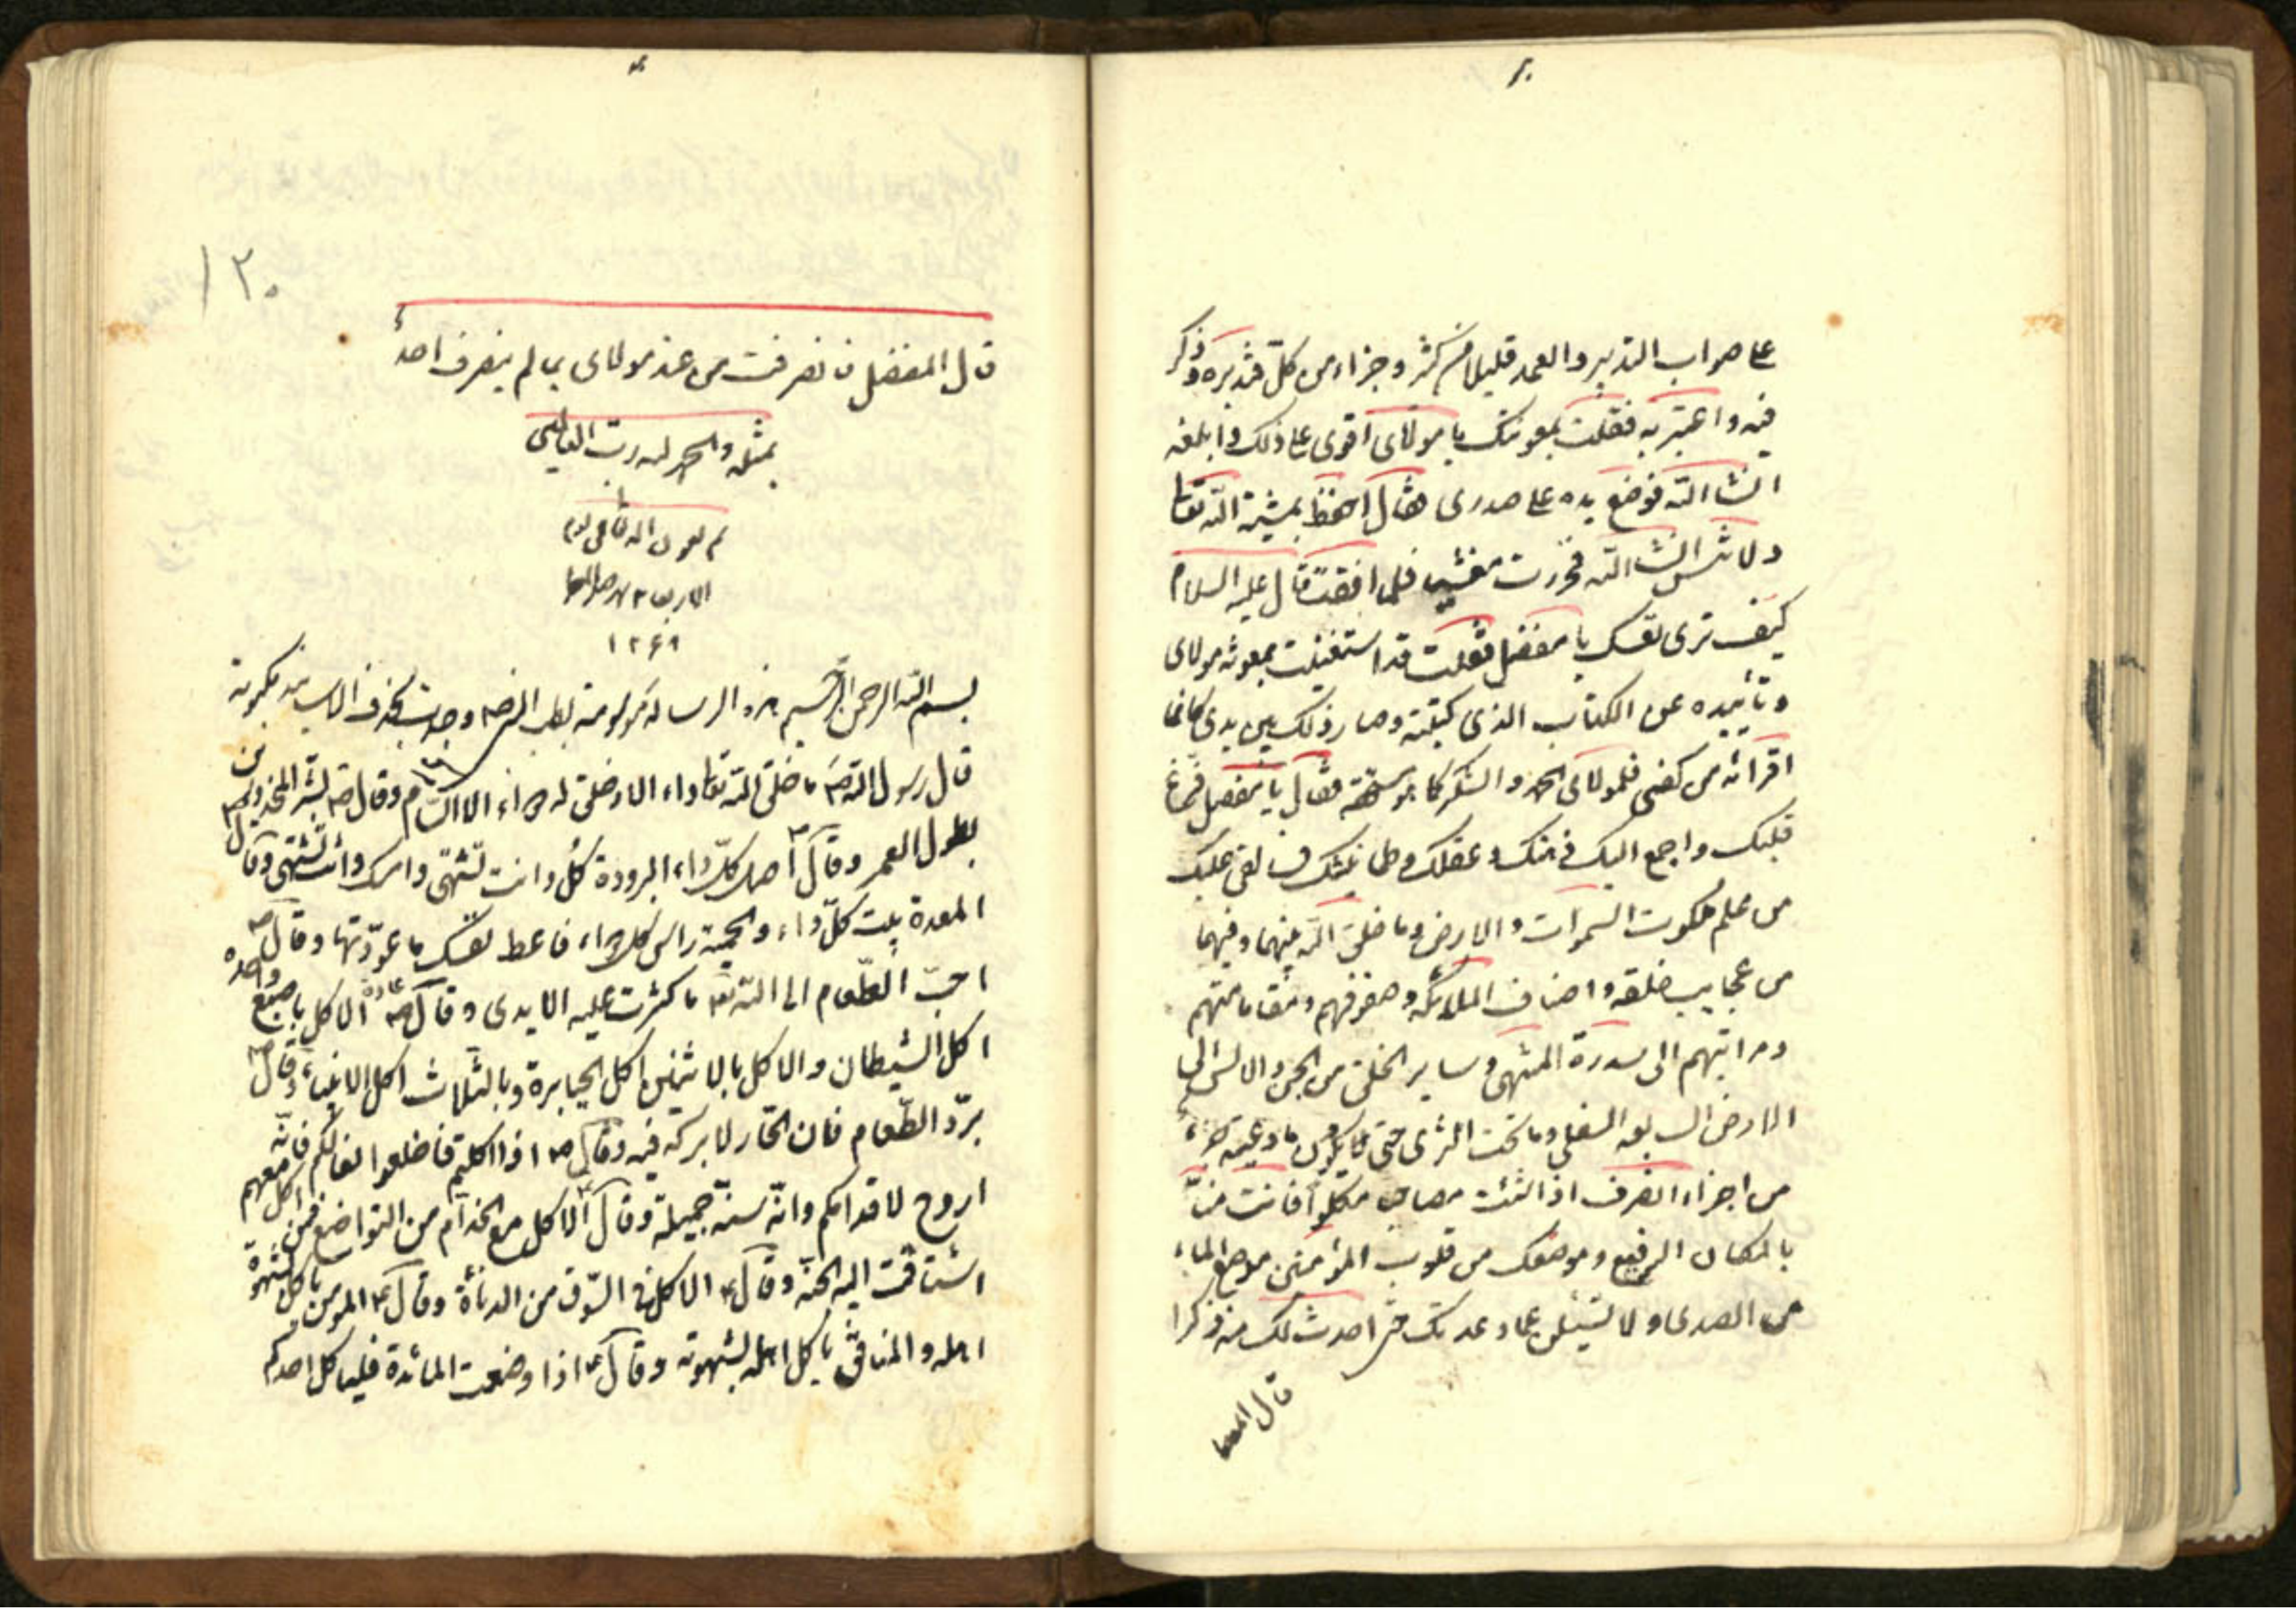 على صواب التدبير والعمد قليلا من كثير وجزاء من كل فتدبره وفكر
فيه واعتبر به فقلت بمعونتك يا مولاى اقوى على ذلك وابلغه
انشاالله فوضع يده على صدرى فقال احفظ بمشية الله تعالى
ولا تنس انشاالله فخررت مغشيا فلما افقت قال عليه السلام
كيف ترى نفسك يا مفضل فقلت قد استغنيت بمعونة مولاى
وتأييده عن الكتاب الذى كتبته وصار ذلك بين يدى كانما
اقرائه من كفى فلمولاى الحمد والشكر كما هو مستحقه فقال يا مفضل فرغ
قلبك واجمع اليك ذهنك وعقلك وطمانينتك فسالقى عليك
من علم ملكوت السموات والارض وما خلق الله بينهما وفيهما
من عجايب خلقه واصناف الملائكه وصفوفهم ومقاماتهم
ومراتبهم الى سدرة المنتهى وساير الخلق من الجن والانس الى
الارض السابعه السفلى وما تحت الثرى حتى يكون ما وعيته جزء
من اجزاء انصرف اذا شئت مصاحبا مكلوا فانت منا
بالمكان الرفيع وموضعك من قلوب المؤمنين موضع الماء
من الصدى ولا تسئلن عما وعدتك حتى احدث لك منه ذكرا
قال المفضل
١٢٠
قال المفضل فانصرفت من عند مولاى بما لم ينصرف احد
بمثله والحمد لله رب العالمين
تم بعون الله تعالى فى يوم
الاربعا
١٢٦٩
بسم الله الرحمن الرحيم هذه الرسالة موسومة بطب النبى ص وجدت بحذف الاسانيد مكتوبة
قال رسول الله ص ما خلق الله تعالى داء الا وخلق له دواء الا السام وقال ص بشر المحرورين
بطول العمر وقال ص اصل كل داء البرودة كل وانت تشتهى وامسك وانت تشتهى وقال
المعدة بيت كل داء والحمية راس كل دواء فاعط نفسك ما عودتها وقال ص
احب الطعام الى الله تعالى ما كثرت عليه الايدى وقال ص الاكل باصبع واحده
اكل الشيطان والاكل بالاثنين اكل الجبابرة وبالثلاث اكل الانبياء وقال ص
برد الطعام فان الحار لا بركه فيه وقال ص اذا اكلتم فاخلعوا نعالكم فانه
اروح لاقدامكم وانه سنة جميلة وقال ص الاكل مع الخدام من التواضع فمن اكل معهم
اشتاقت اليه الجنة وقال ع الاكل فى السوق من الدنائة وقال ع المومن ياكل بشهوة
اهله والمنافق ياكل اهله بشهوته وقال ع اذا وضعت المائدة فلياكل احدكم